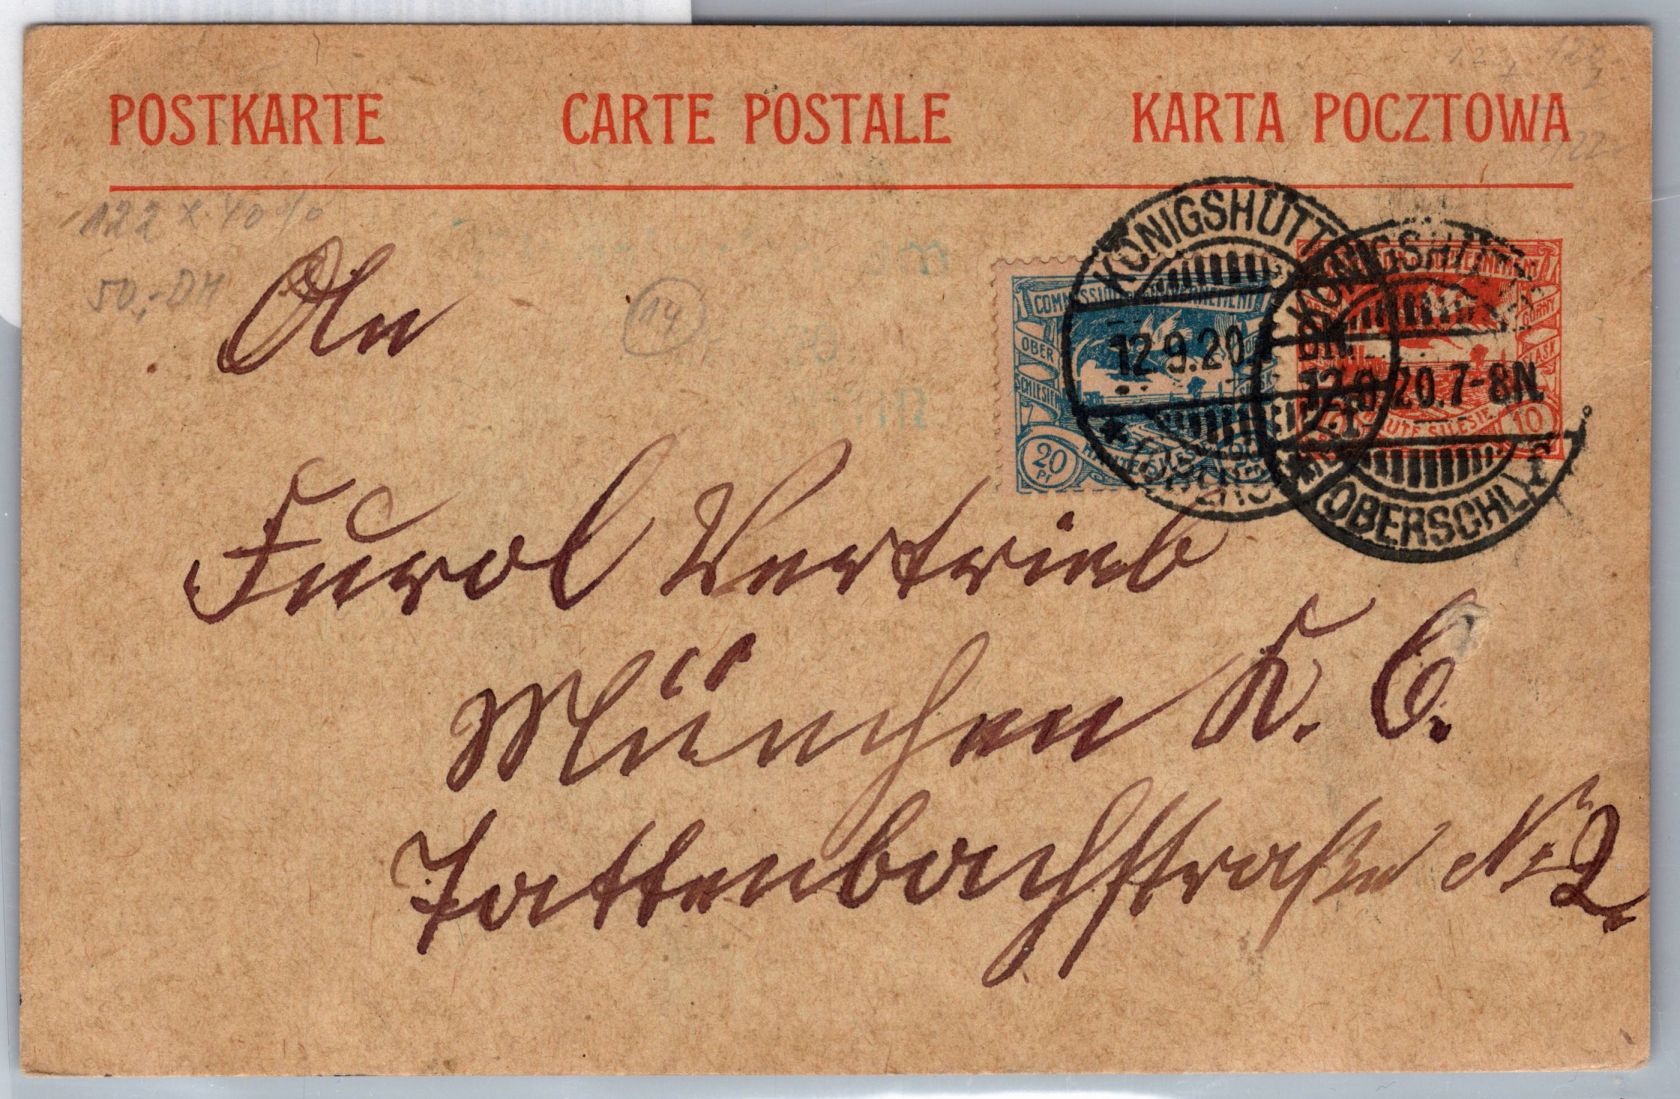 POSTKARTE CARTE POSTALE KARTA POCZTOWA
122 x 40%
50,- DM
14
An
COMMISSION
OBER
SCHLESIEN
20
Pf
KÖNIGSHÜTTE
12.9.20
KÖNIGSHÜTTE
12.9.20.7-8N.
OBERSCHL.
GORNY
SLASK
HAUTE SILESIE
10
Furol Vertrieb
München K. C.
Tattenbachstraße No 2